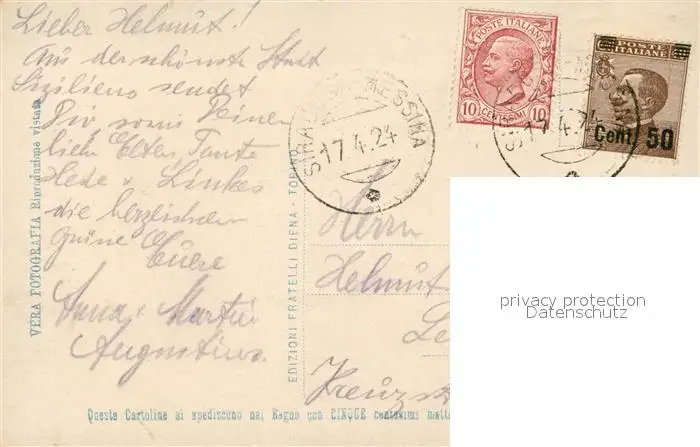 Lieber Helmut!
Aus der schönsten Stadt
Siziliens sendet
Dir sowie Deinen
lieben Eltern, Tante
Hede u. Linkes
die herzlichen
Grüße Euere
Martin
Augustinus.
VERA FOTOGRAFIA Riproduzione vietata
EDIZIONI FRATELLI DIENA - TORINO
POSTE ITALIANE
10 CENTESIMI 10
SIRAC MESSINA
17.4.24
POSTE ITALIANE
Cent. 50
17.4.24
Herrn
Helmut
Le
Kreuzst
privacy protection
Datenschutz
Queste Cartoline si spediscono nel Regno con CINQUE centesimi mett